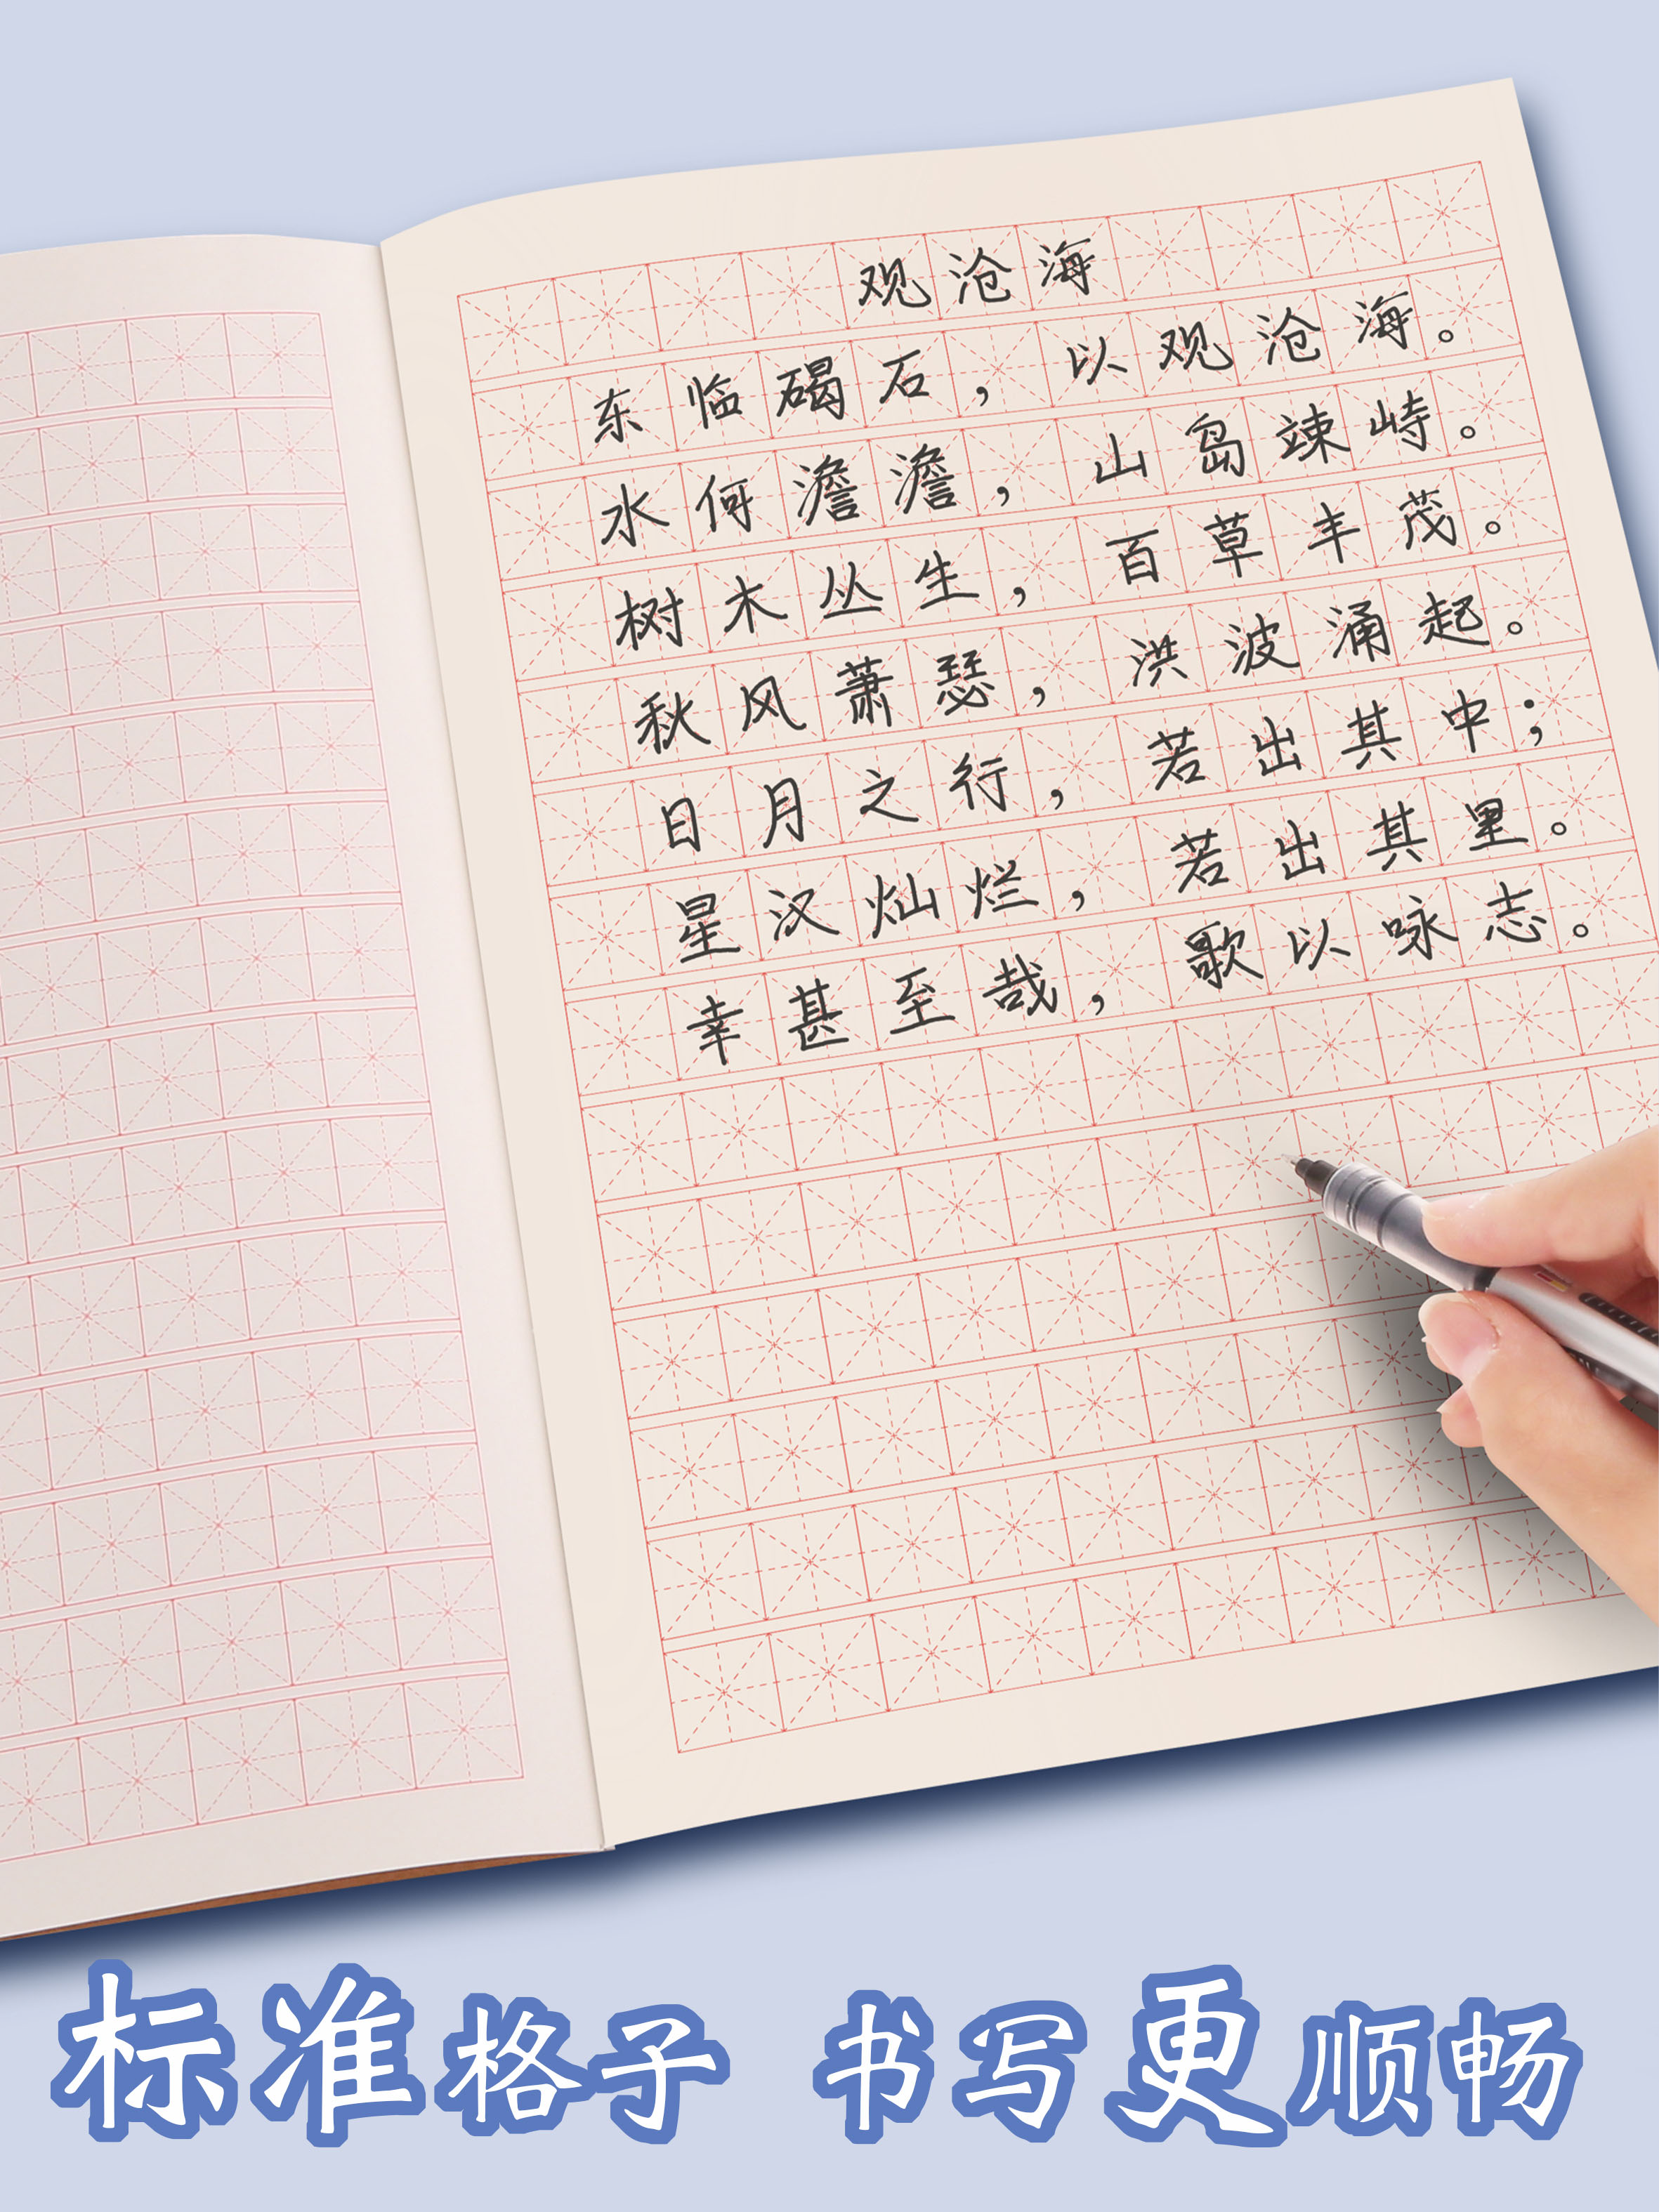 观沧海
东临碣石，以观沧海。
水何澹澹，山岛竦峙。
树木丛生，百草丰茂。
秋风萧瑟，洪波涌起。
日月之行，若出其中；
星汉灿烂，若出其里。
幸甚至哉，歌以咏志。
标准格子 书写更顺畅